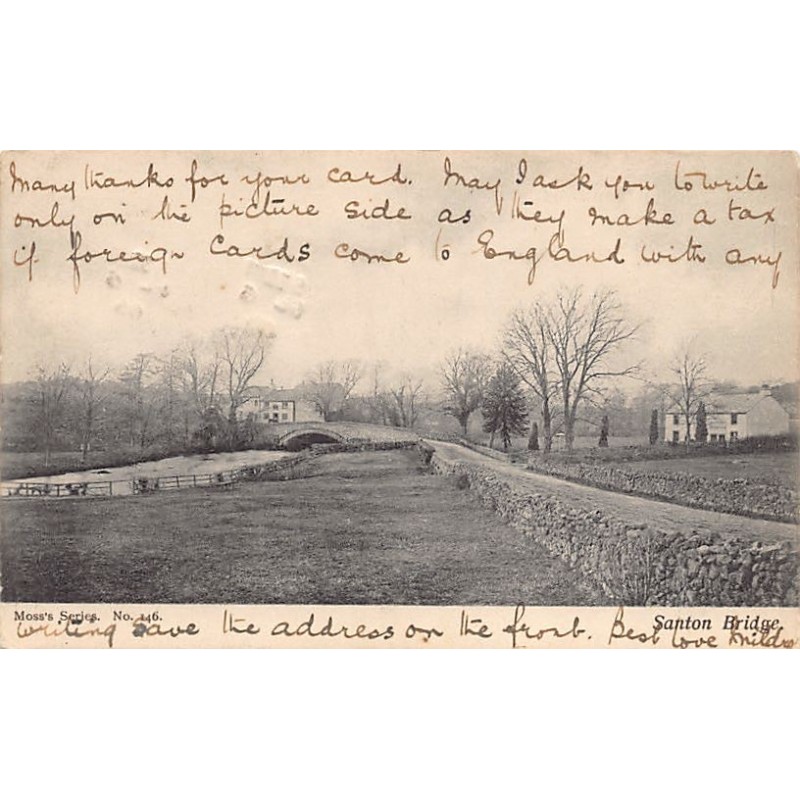 Many thanks for your card. May I ask you to write
only on the picture side as they make a tax
if foreign Cards come to England with any
Moss's Series. No. 146.
Santon Bridge.
writing save the address on the front. Best love